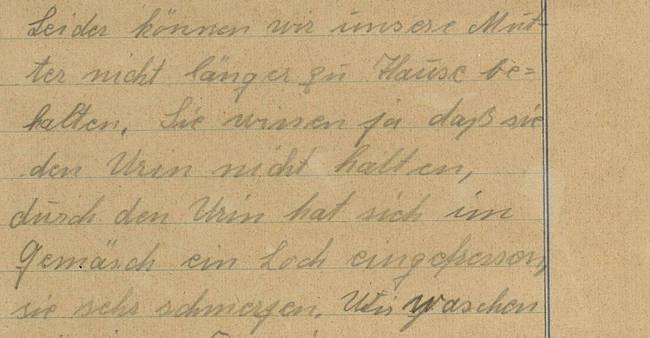 Leider können wir unsere Mut-
ter nicht länger zu Hause be=
halten. Sie wissen ja daß sie
den Urin nicht halten,
durch den Urin hat sich im
Gemäsch ein Loch eingefressen,
sie sehr schmerzen. Wir waschen